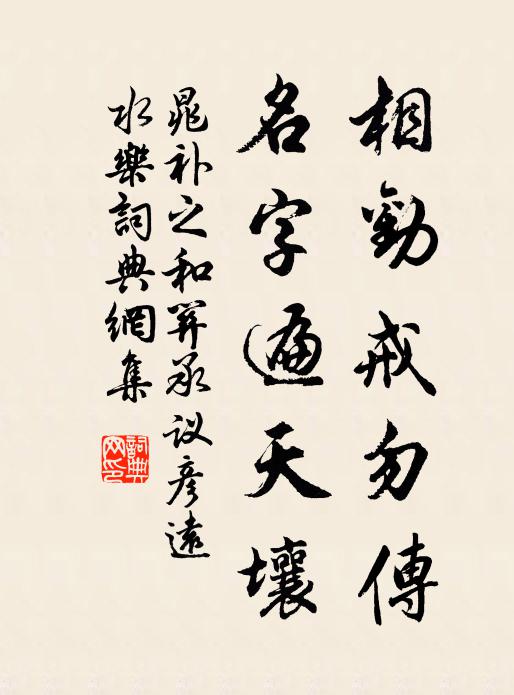 相勸戒勿傳
名字遍天壤
晁补之和羿承议彦遠
水樂詞典網集
詞典网印